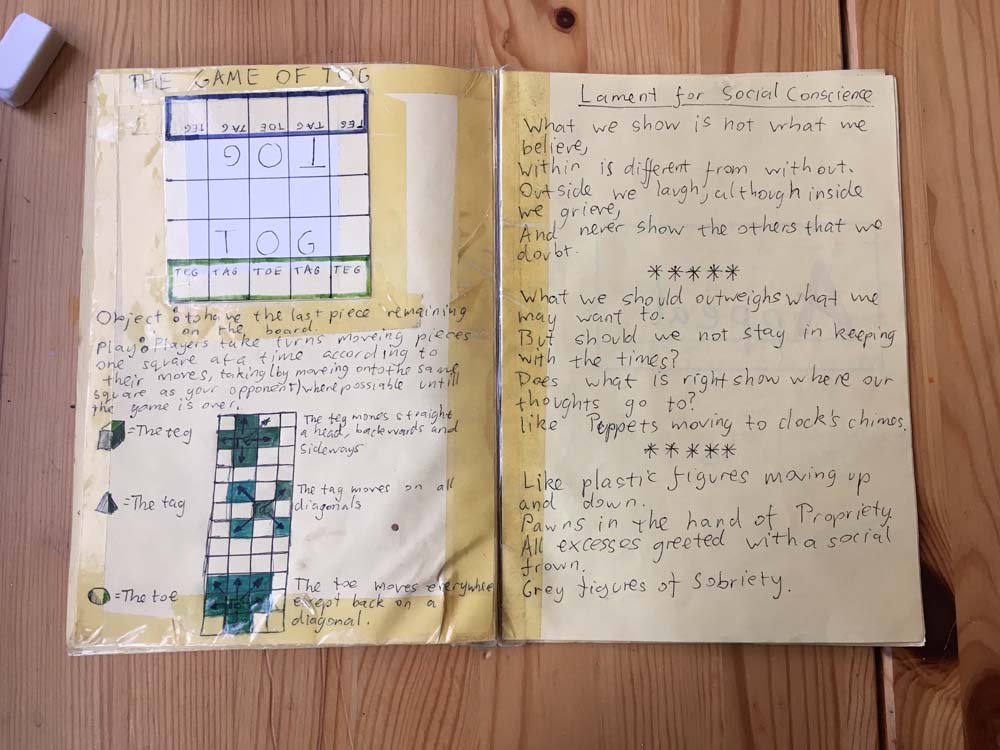 THE GAME OF TOG
TEG TAG TOE TAG TEG
TOG
TOG
TEG TAG TOE TAG TEG
Object: to have the last piece remaining
on the board.
Play: Players take turns moveing pieces
one square at a time according to
their moves, taking (by moveing onto the same
square as your opponent) where possiable untill
the game is over.
=The teg
The teg moves straight
a head, backwards and
sideways
=The tag
The tag moves on all
diagonals
=The toe
The toe moves everywhere
exept back on a
diagonal.
Lament for Social Conscience
What we show is not what me
believe,
Within is different from without.
Outside we laugh, although inside
we grieve,
And never show the others that we
doubt.
*****
What we should outweighs what me
may want to.
But should we not stay in keeping
with the times?
Does what is right show where our
thoughts go to?
Like Puppets moving to clock's chimes.
*****
Like plastic figures moving up
and down.
Pawns in the hand of Propriety
All excesses greeted with a social
frown.
Grey figures of Sobriety.